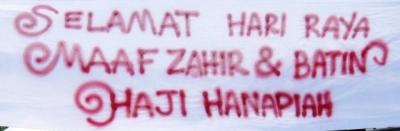 SELAMAT HARI RAYA
MAAF ZAHIR & BATIN
HAJI HANAPIAH